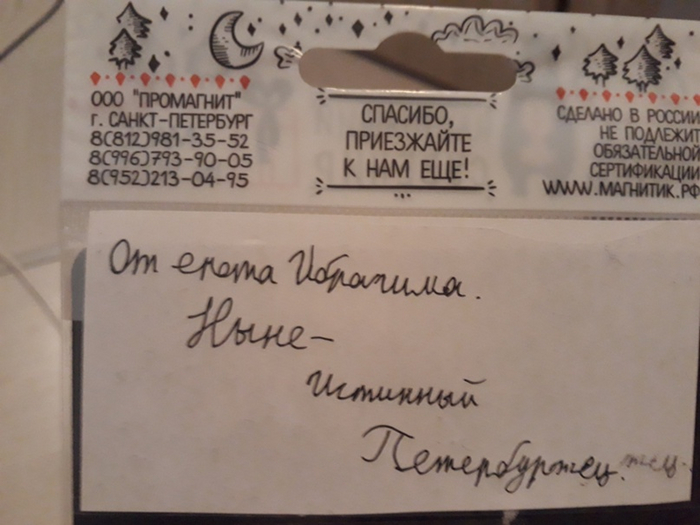 ООО "ПРОМАГНИТ"
г. САНКТ-ПЕТЕРБУРГ
8(812)981-35-52
8(996)793-90-05
8(952)213-04-95
СПАСИБО,
ПРИЕЗЖАЙТЕ
К НАМ ЕЩЕ!
СДЕЛАНО В РОССИИ
НЕ ПОДЛЕЖИТ
ОБЯЗАТЕЛЬНОЙ
СЕРТИФИКАЦИИ
WWW.МАГНИТИК.РФ
От енота Ибрагима.
Ныне-
истинный
Петербуржец.